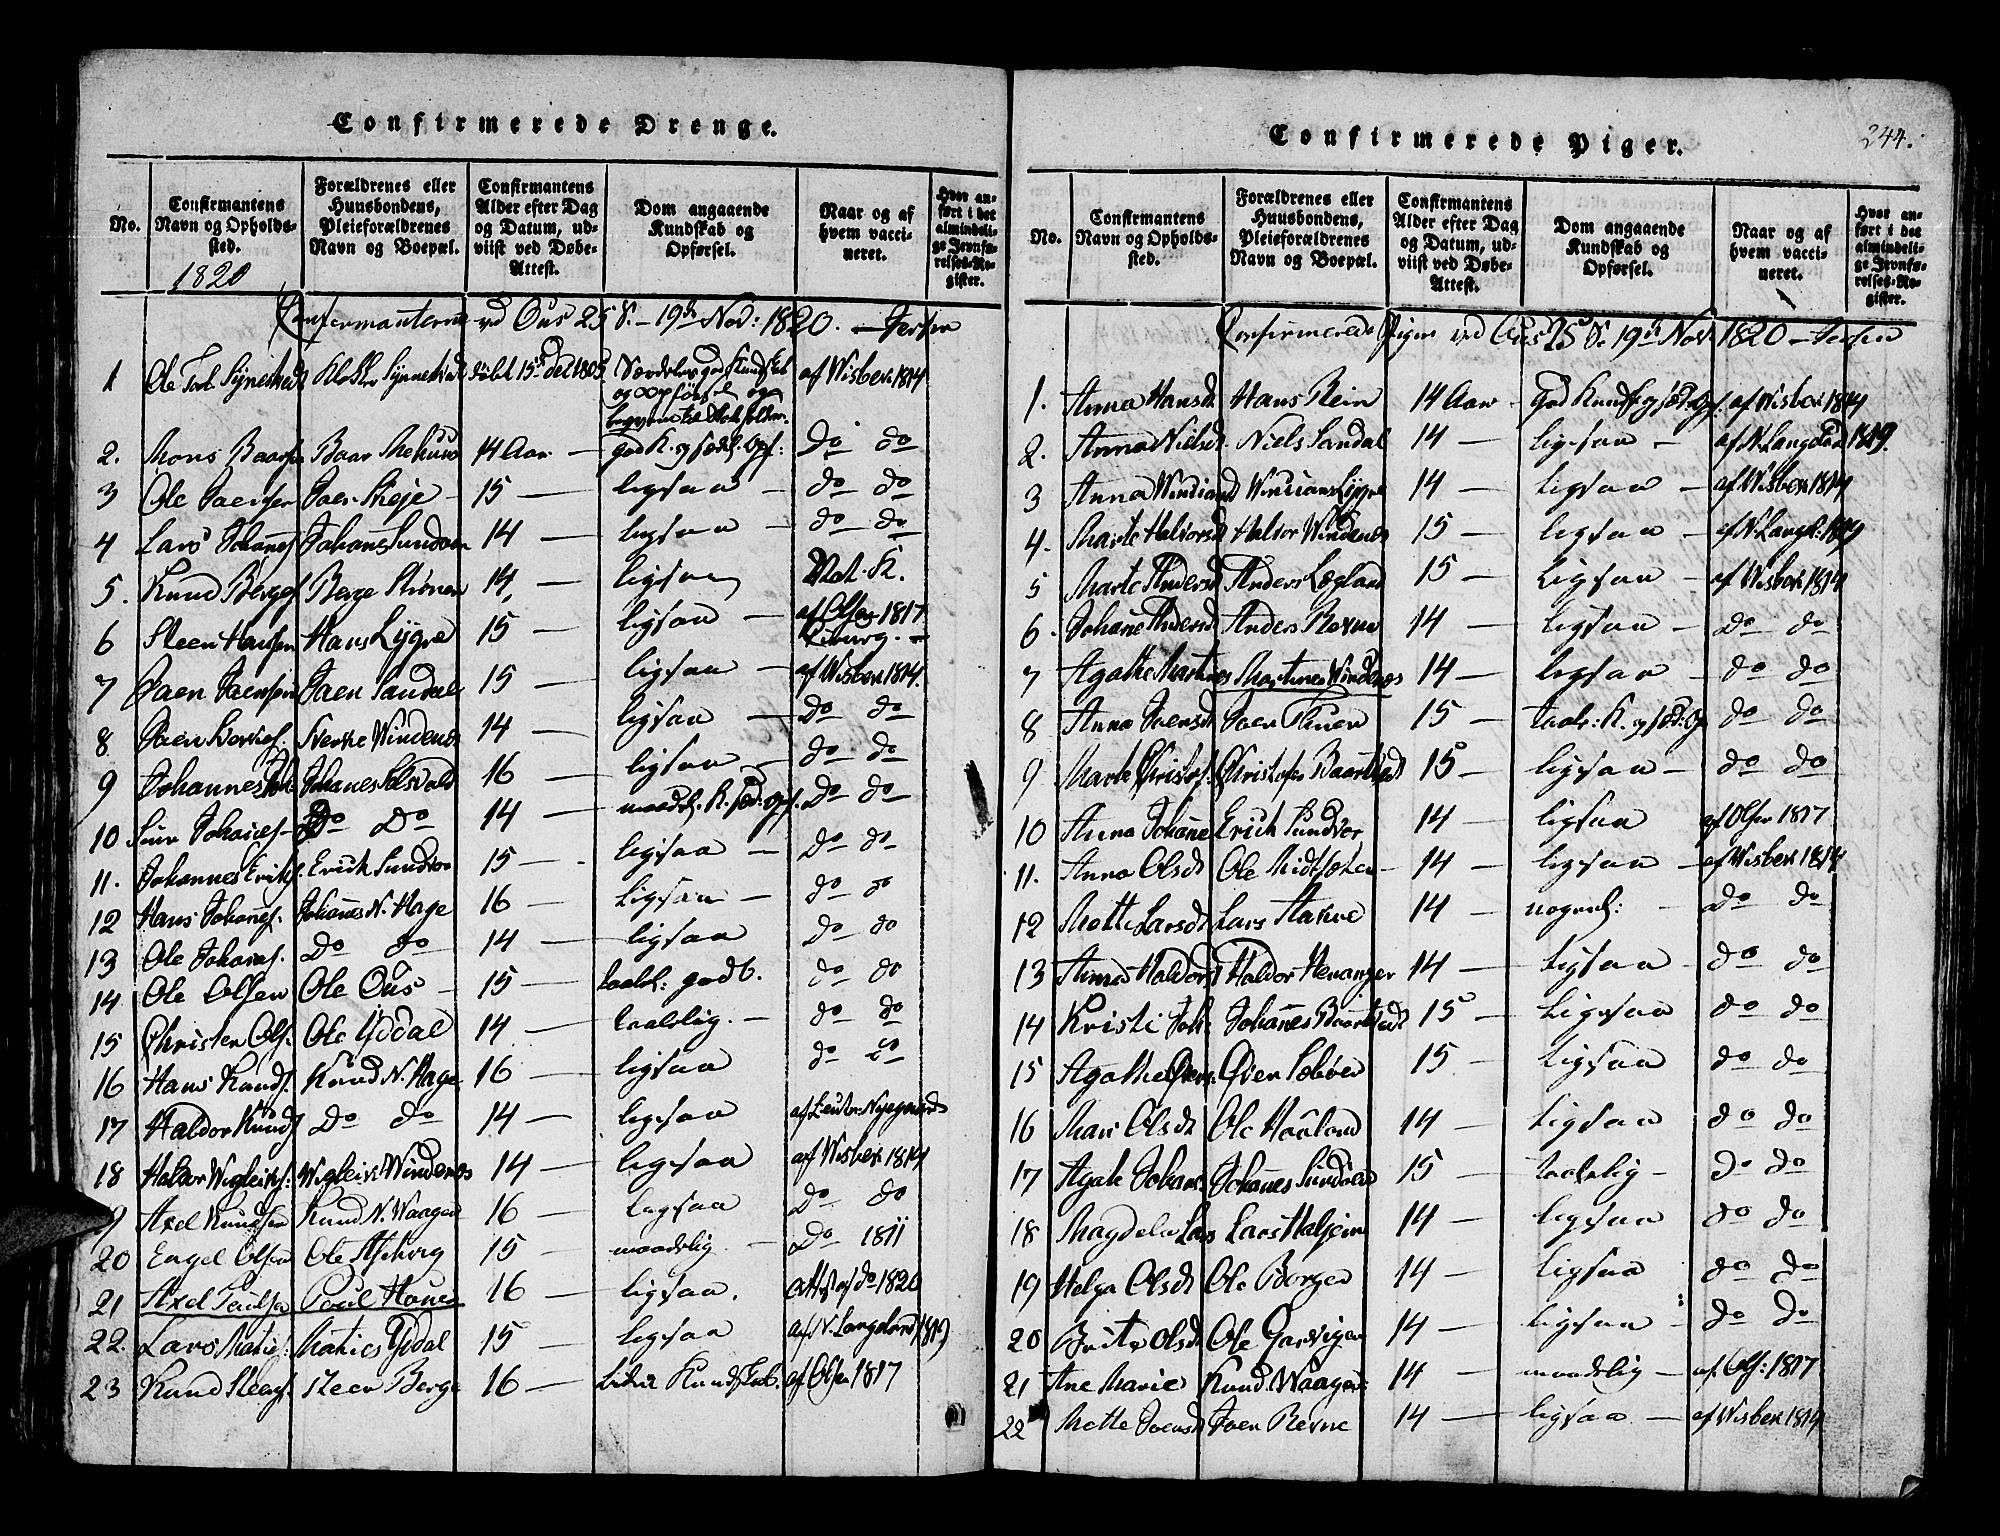 Confirmerede Drenge.
No.
Confirmantens Navn og Opholdssted.
1820
Forældrenes eller Huusbondens, Pleieforældrenes Navn og Boepæl.
Confirmantens Alder efter Dag og Datum, udviist ved Døbe-Attest.
Dom angaaende Kundskab og Opførsel.
Naar og af hvem vaccineret.
Hvor anført i det almindelige Jevnførelses-Register.
Confirmanterne ved Ous 25 S. 19de Nov: 1820.
1 Ole Torb. Synnestvedt Klokker Synnestvedt døbt 15de Dec 1805 Særdeles god Kundskab og Opførsel og af Wisbek 1814
2. Mons Baarsen Baar 14 Aar — god K. og sædel. Opf: Do do
3 Ole Jaensen Jaen 15 — ligsaa — do do
4 Lars Johanes. Johanes Sundvor 14 — ligsaa — do do
5. Knud Berges. Berge Strönen 14, — ligsaa Nat. K.
6 Steen Hansen Hans Lygre 15 — ligsaa — af Olsen 1817
7 Jaen Jaensen Jaen Sandal 15 — ligsaa — af Wisbek 1814.
8 Jaen Sverkes. Sverke Windenes 14 — ligsaa — Do do
9 Johannes Joh. Johanes Selsvold 16 — ligsaa — do do
10 Siur Johanes. Do Do 14 — maadel. K. sæd: Opf. Do do
11. Johannes Eriks. Erich Sundvor 15 — ligsaa — do do
12 Hans Johanes. Johanes N. Hage 16 — ligsaa — do do
13 Ole Johanes. Do do 14 — ligsaa do do
14. Ole Olsen Ole Ous — 15 — taalel: godt. do do
15 Christen Ols. Ole Yddal 14 — taalelig. — do do
16 Hans Knuds. Knud N. Hage 16 — ligsaa do do
17 Haldor Knuds. Do do 14 — ligesaa af Leutn. Nyegaard
18 Haldor Wigleiks. Wigleik Windenes 14 — ligesaa af Wisbek 1814
19 Axel Knudsen Knud N. Waagen 16 — ligesaa Do do
20 Engel Olsen Ole Apberg 15 — maadelig. — Do 1811
21 Axel Paulsen Poul Houen 16 — ligsaa. Attest af do 1820
22. Lars Maties: Maties Yddal 15 — ligsaa af N. Langeland 1819
23 Knud Steens. Steen Berge 16 — Liden Kundskab. af Olsen 1817
244.
Confirmerede Piger.
No.
Confirmantens Navn og Opholdssted.
Forældrenes eller Huusbondens, Pleieforældrenes Navn og Boepæl.
Confirmantens Alder efter Dag og Datum, udviist ved Døbe-Attest.
Dom angaaende Kundskab og Opførsel.
Naar og af hvem vaccineret.
Hvor anført i det almindelige Jevnførelses-Register.
Confirmerede Piger ved Ous 25 S. 19de Nov. 1820
1. Anna Hansd. Hans Rein 14 Aar — God Kundsk. og sædel. Opf. af Wisbek 1814
2. Anna Nielsd. Niels Sandal 14 — ligesaa — af N. Langeland 1819.
3 Anna Winsiansd Winsians Lygre 14 — ligsaa — af Wisbek 1814
4. Marte Halvorsd. Halvor Windenes 15 — ligsaa — af N. Langel: 1819
5 Marte Andersd Anders Legland 15 — ligsaa — af Wisbek 1814
6. Johane Andersd Anders Revne 14 — ligsaa — Do do
7 Agathe Martines Martines Windenes 14 — ligsaa — do do
8 Anna Jaensd. Jaen Tunen 15 — taal: K. og sæd: Op do do
9 Marte Christof. Christofer Baarthvedt 15 — ligsaa — do do
10 Anna Johane Erich Sundvor 14 — ligsaa af Olsen 1817
11. Anna Olsdt. Ole Midtsæter 14 — ligsaa — af Wisbek 1814
12 Mette Larsdt. Lars 14 — nogenl: — Do do
13 Anna Haldors Haldor Hevanger 14 — ligsaa — do do
14 Kristi Joh: Johanes Baarthvedt 15 — ligesaa do do
15 Agathe Øiens. Øien Selsvær 15 — ligsaa do do
16 Mari Olsdt. Ole Haaland 14 — ligsaa do do
17 Agate Johans. Johanes Sundvor 15 — taalelig — do do
18 Magdela Lars Lars Haljem 14 — ligesaa do do
19 Helga Olsdt. Ole Borgen 14 — ligsaa do do
20 Brite Olsdt. Ole Garvigen 14 — ligsaa — do do
21 Ane Marie Knud Waagen 14 — maadelig — af Ols: 1817
22 Mette Jaensdt Jaen Revne 14 — ligsaa — af Wisbek 1814